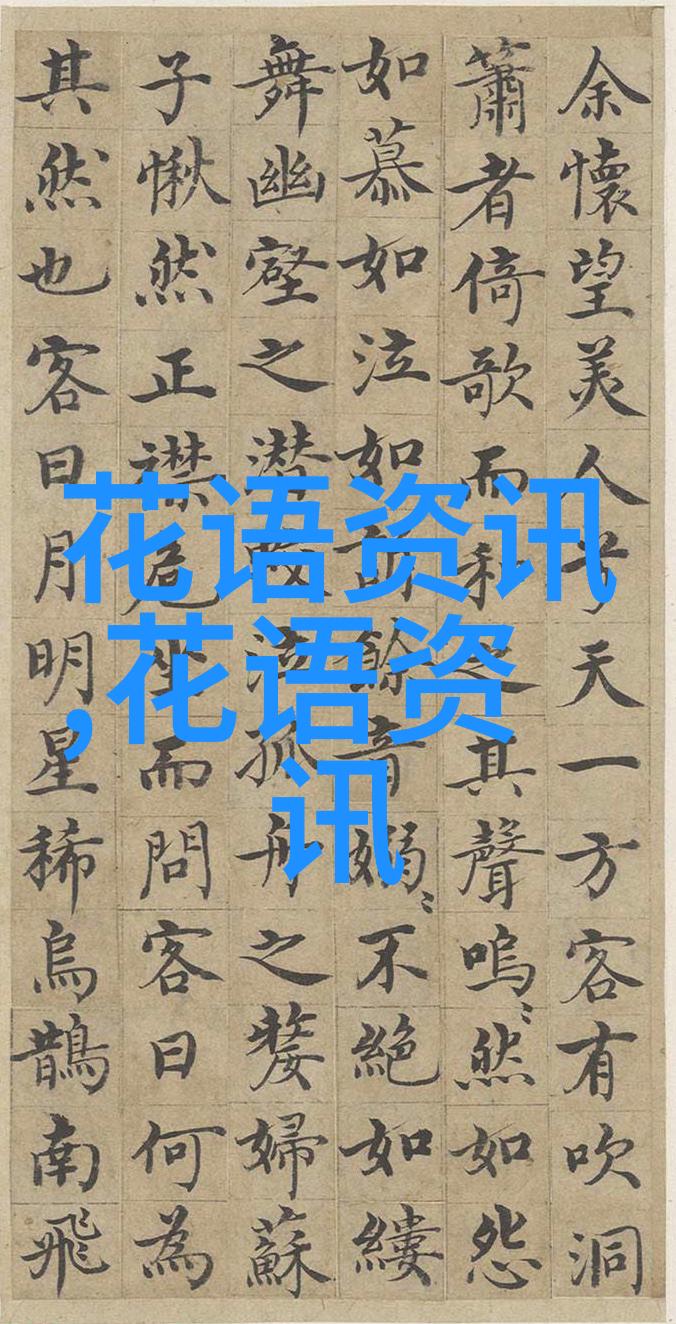 余懷望美人兮天一方客有吹洞
簫者倚歌而和之其聲嗚〻然如怨
如慕如泣如訴餘音嫋〻不絕如縷
舞幽壑之潜蛟泣孤舟之嫠婦蘇
子愀然正襟危坐而問客曰何為
其然也客曰月明星稀烏鵲南飛
花语资讯
,花语资
讯